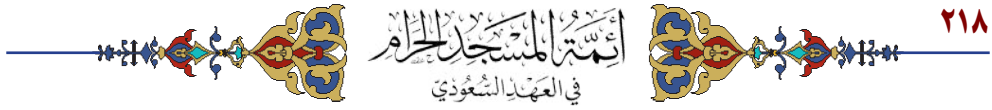 ٢١٨
أَئِمَّةُ المَسْجِدِ الحَرَامِ
فِي العَهْدِ السُّعُودِيّ